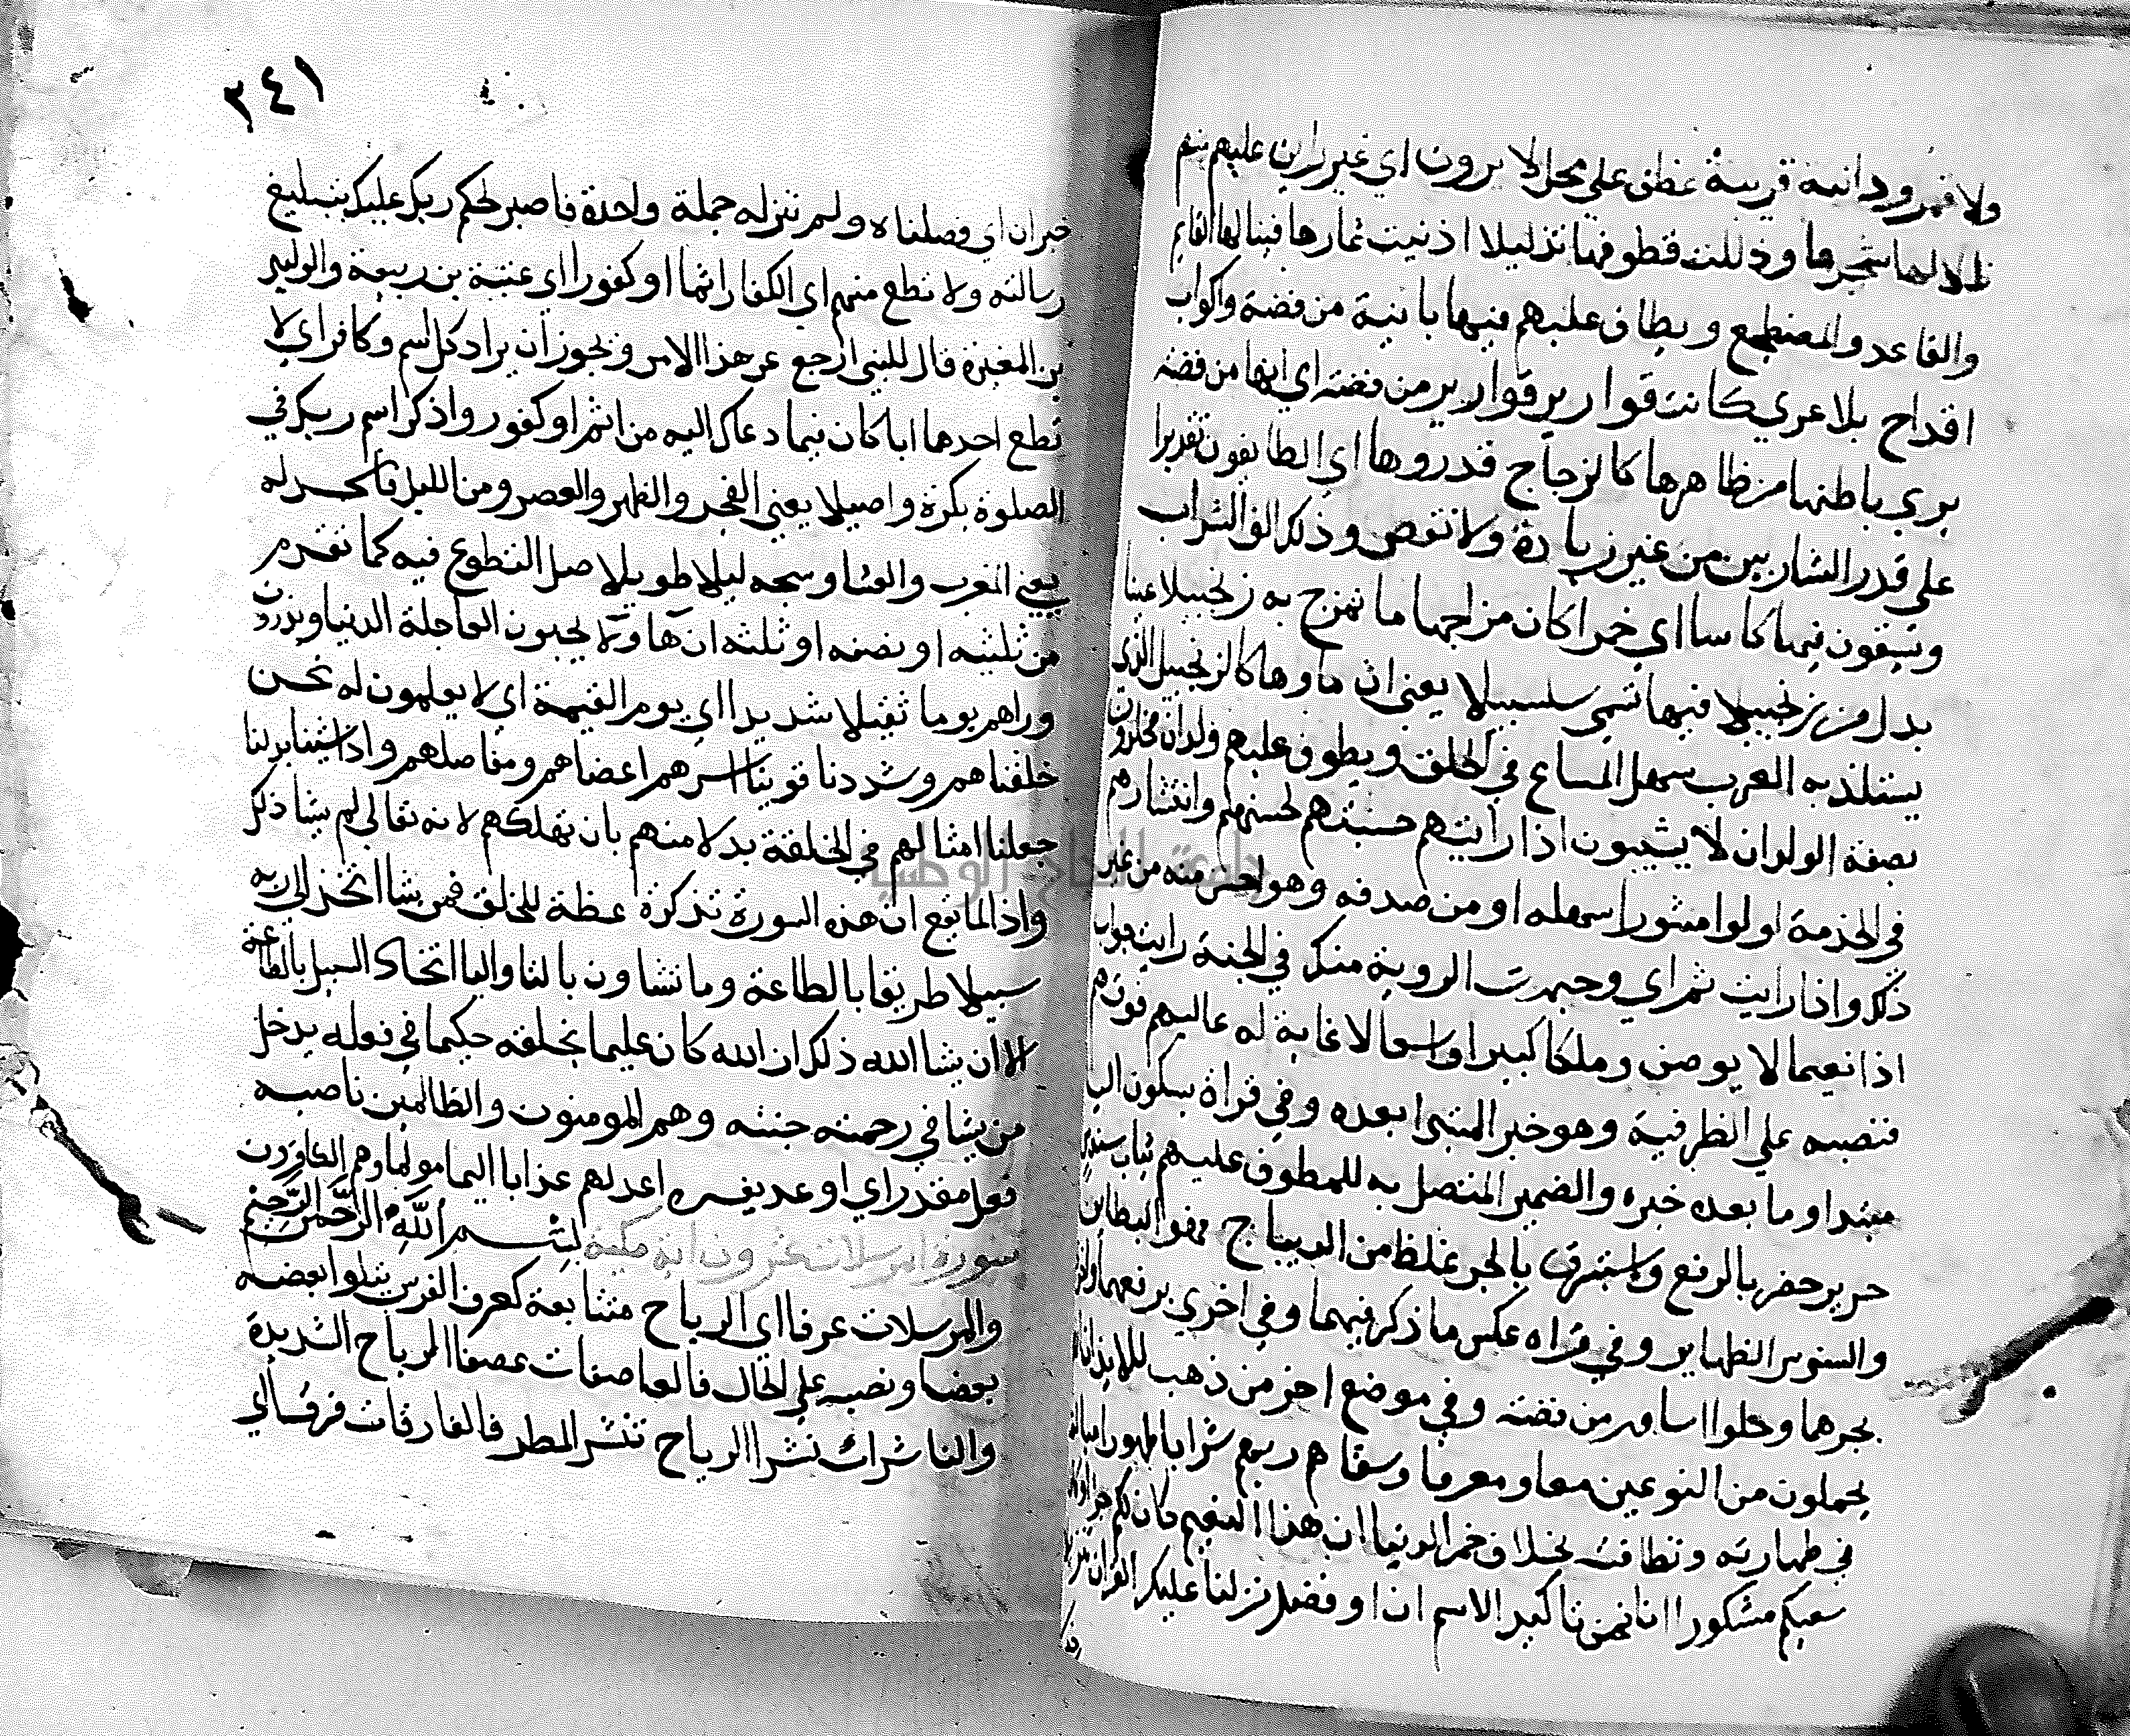 ولا قمر ودانية قريبة عطف علي محل لا يرون اي غير راين عليهم منهم
ظلالها شجرها وذللت قطوفها تذليلا ادنيت ثمارها فينالها القايم
والقاعد والمضطجع ويطاف عليهم فيها بانية من فضة واكواب
اقداح بلا عري كانت قوارير قوارير من فضة اي انها من فضة
يري باطنها من ظاهرها كالزجاج قدروها اي الطايفون تقديرا
علي قدر الشاربين من غير زيادة ولا نقص وذلك الذ الشراب
ويسقون فيها كاسا اي خمرا كان مزاجها ما تمزج به زنجبيلا عينا
بدل من زنجبيلا فيها تسمي سلسبيلا يعني ان ماوها كالزنجبيل الذي
يستلذ به العرب سهل المساغ في الحلق ويطوف عليهم ولدان مخلدون
بصفة الولدان لا يشيبون اذا رايتهم حسبتهم لحسنهم وانتشارهم
في الخدمة لولوا منثورا سهله او من صدفه وهو احسن منه من غير
ذلك واذا رايت ثم اي وجهرت الروية منك في الجنة رايت جواب
اذا نعيما لا يوصف وملكا كبيرا واسعا لا غاية له عاليهم فوقهم
فنصبه علي الظرفية وهو خبر المبتدا بعده وفي قراة بسكون اليا
مبتدا وما بعده خبره والضمير المتصل به للمطوف عليهم ثياب سندس
حرير خضر بالرفع واستبرق بالجر غلظ من الديباج فهو البطاين
والسندس الظهاير وفي قراه عكس ما ذكر فيهما وفي اخري برفعهما واخري
بجرهما وحلوا اساور من فضة وفي موضع اخر من ذهب للايذان
يحملون من النوعين معا ومعرفا وسقاهم ربهم شرابا طهورا مبالغة
في طهارته ونظافته بخلاف خمر الدنيا ان هذا النعيم كان لكم جزا وكان
سعيكم مشكورا انا نحن تاكيد لاسم ان او فصل نزلنا عليك القران تنزيلا
٢٤١
خبر ان اي فصلناه ولم ننزله جملة واحدة فاصبر لحكم ربك عليك بتبليغ
رسالته ولا تطع منهم اي الكفار اثما او كفورا اي عتبة بن ربيعة والوليد
بن المغيرة قال للنبي ارجع عن هذا الامر ويجوز ان يراد كل اثم وكافر اي لا
تطع احدهما ايا كان فيما دعاك اليه من اثم او كفور واذكر اسم ربك في
الصلوة بكرة واصيلا يعني الفجر والظهر والعصر ومن الليل فاسجد له
يعني المغرب والعشا وسبحه ليلا طويلا صل التطوع فيه كما تقدم
من ثلثيه او نصفه او ثلثه ان هاولا يحبون العاجلة الدنيا ويذرون
وراهم يوما ثقيلا شديدا اي يوم القيمة اي لا يعلمون له نحن
خلقناهم وشددنا قوينا اسرهم اعضاهم ومفاصلهم واذا شينا بدلنا
جعلنا امثالهم في الخلقة بدلا منهم بان نهلكهم لانه تعالي لم يشا ذلك
واذا لما يقع ان هذه السورة تذكرة عظة للخلق فمن شا اتخذ الي ربه
سبيلا طريقا بالطاعة وما تشاون بالتا واليا اتخاذ السبيل بالطاعة
الا ان يشا الله ذلك ان الله كان عليما بخلقه حكيما في فعله يدخل
من يشا في رحمته جنته وهم المومنون والظالمين ناصبه
فعل مقدر اي اوعد يفسره اعد لهم عذابا اليما مولما وهم الكافرون
سورة المرسلات خمسون اية مكية بسم الله الرحمن الرحيم
والمرسلات عرفا اي الرياح متتابعة كعرف الفرس يتلوا بعضه
بعضا ونصبه علي الحال فالعاصفات عصفا الرياح الشديدة
والناشرات نشرا الرياح تنشر المطر فالفارقات فرقا اي